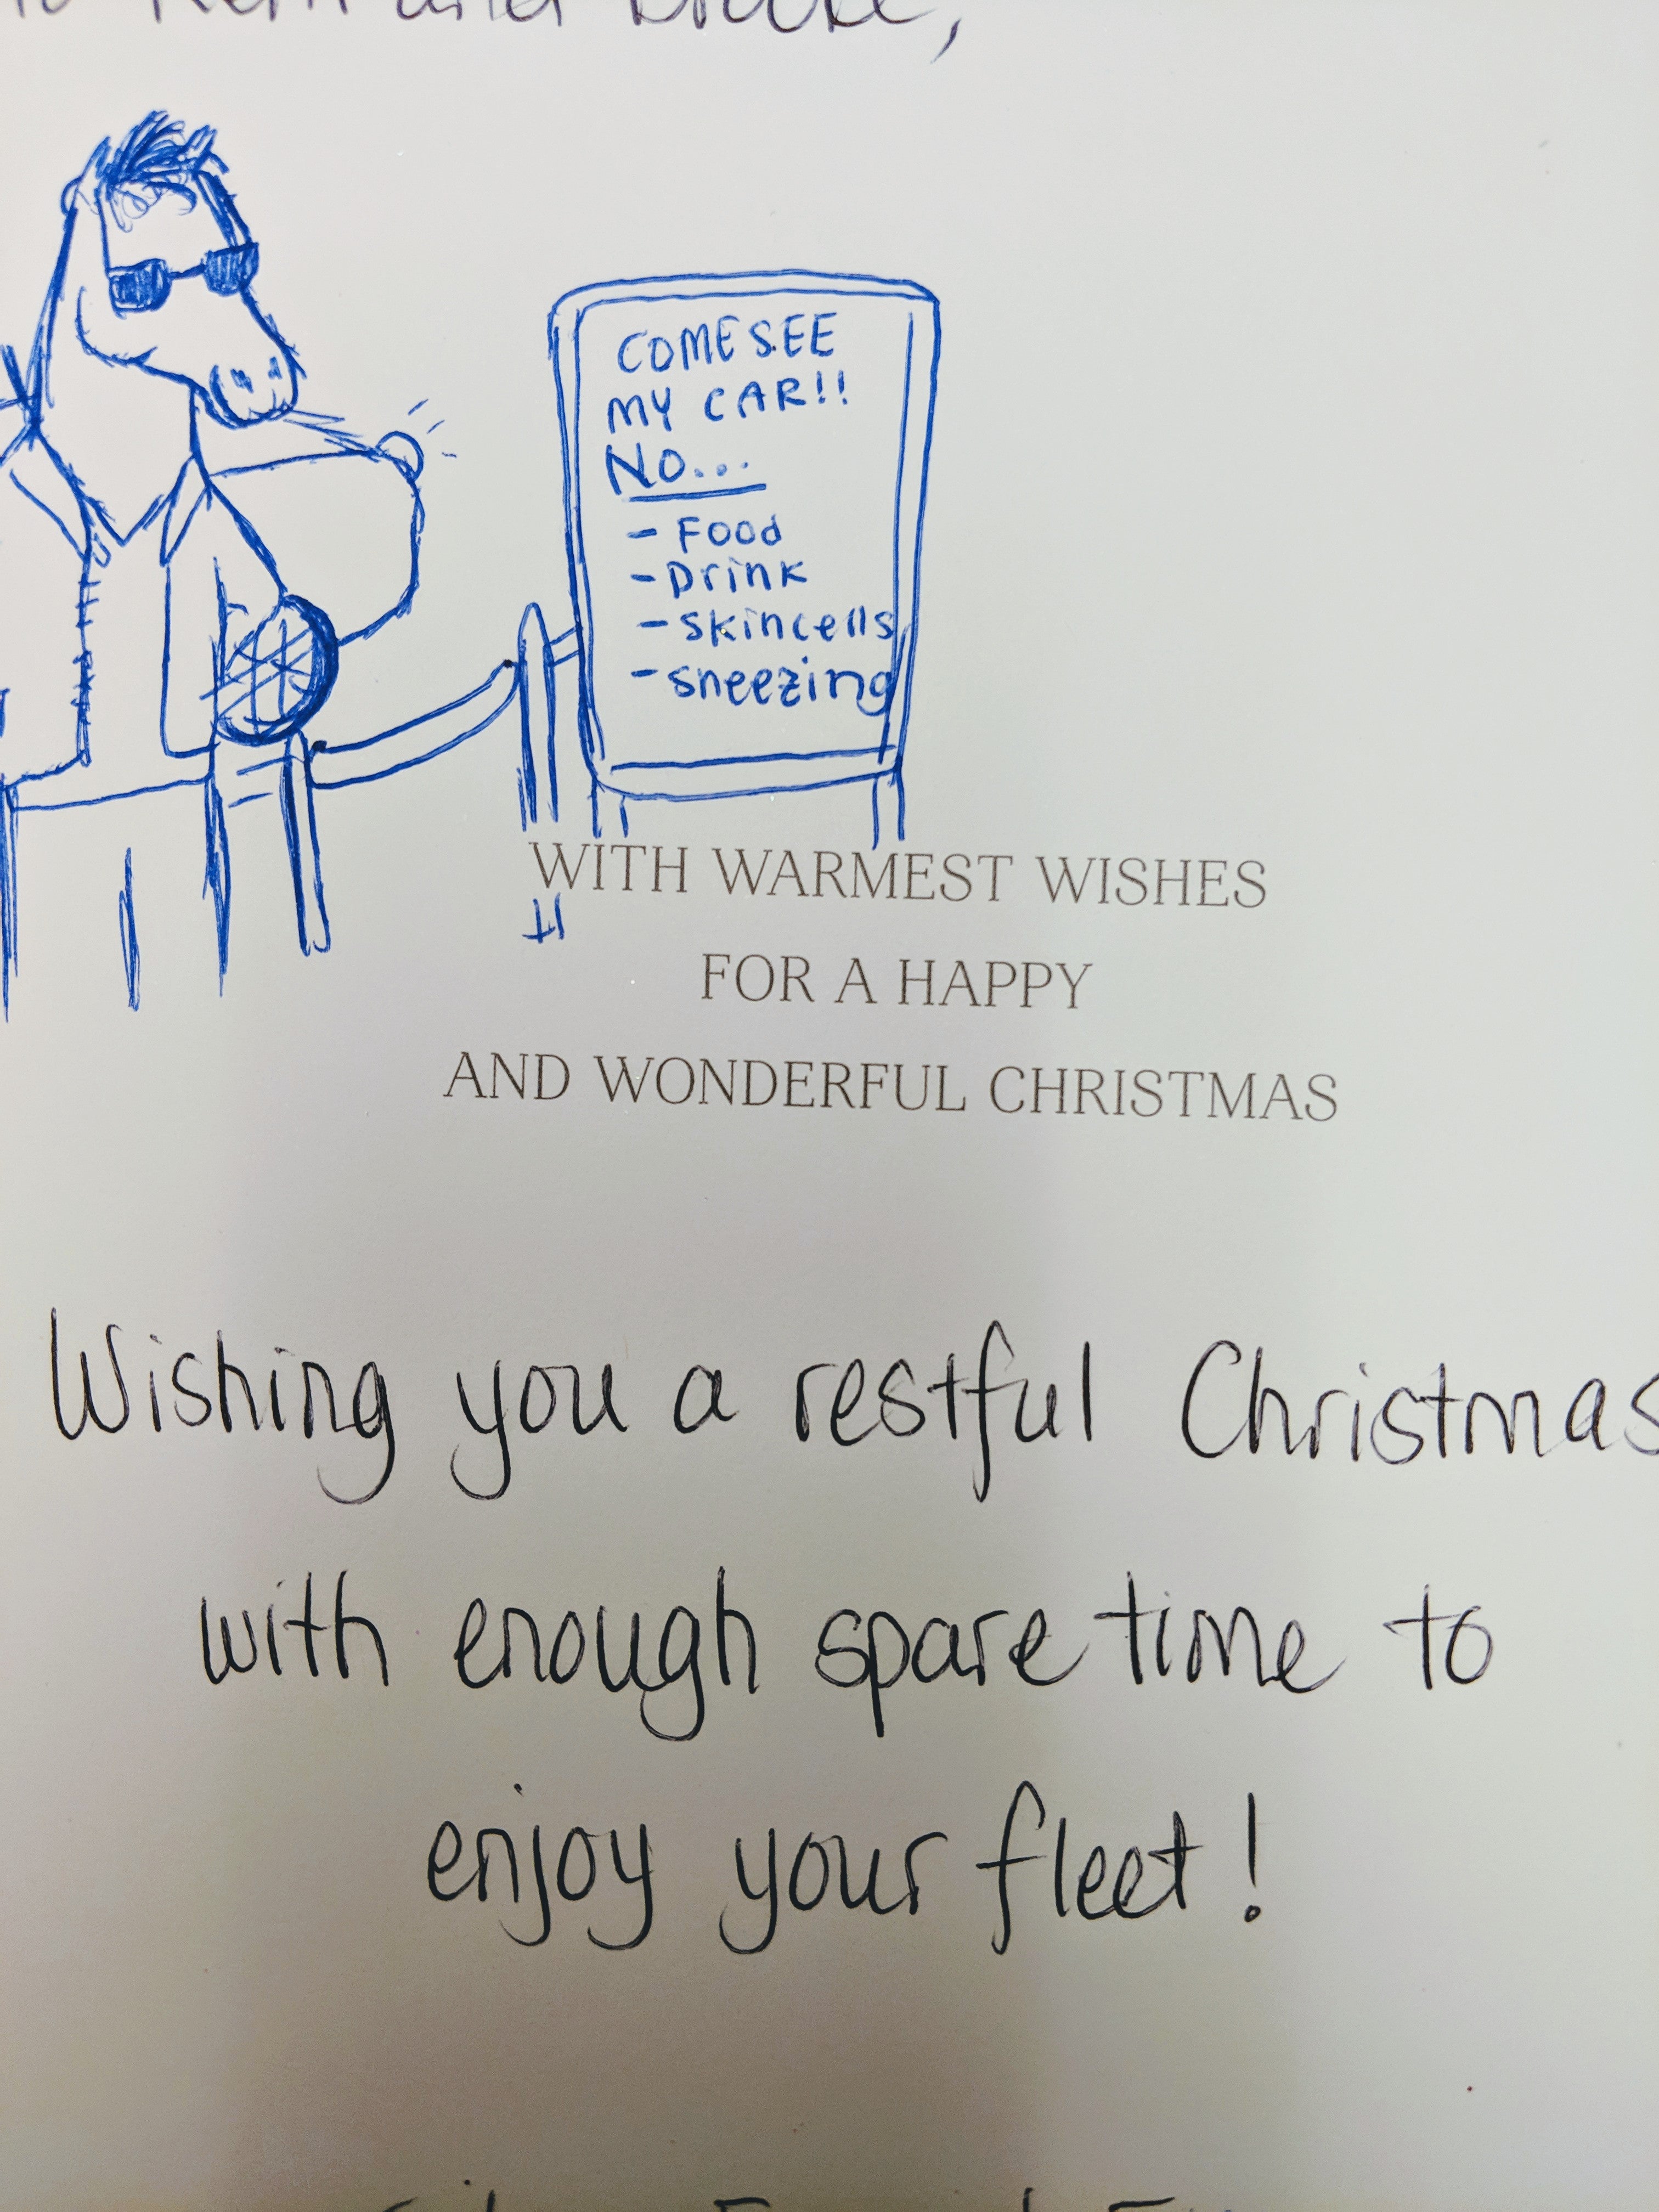 and
COME SEE
MY CAR!!
No...
- Food
- Drink
- skincells
- sneezing
WITH WARMEST WISHES
FOR A HAPPY
AND WONDERFUL CHRISTMAS
Wishing you a restful Christmas
with enough spare time to
enjoy your fleet!